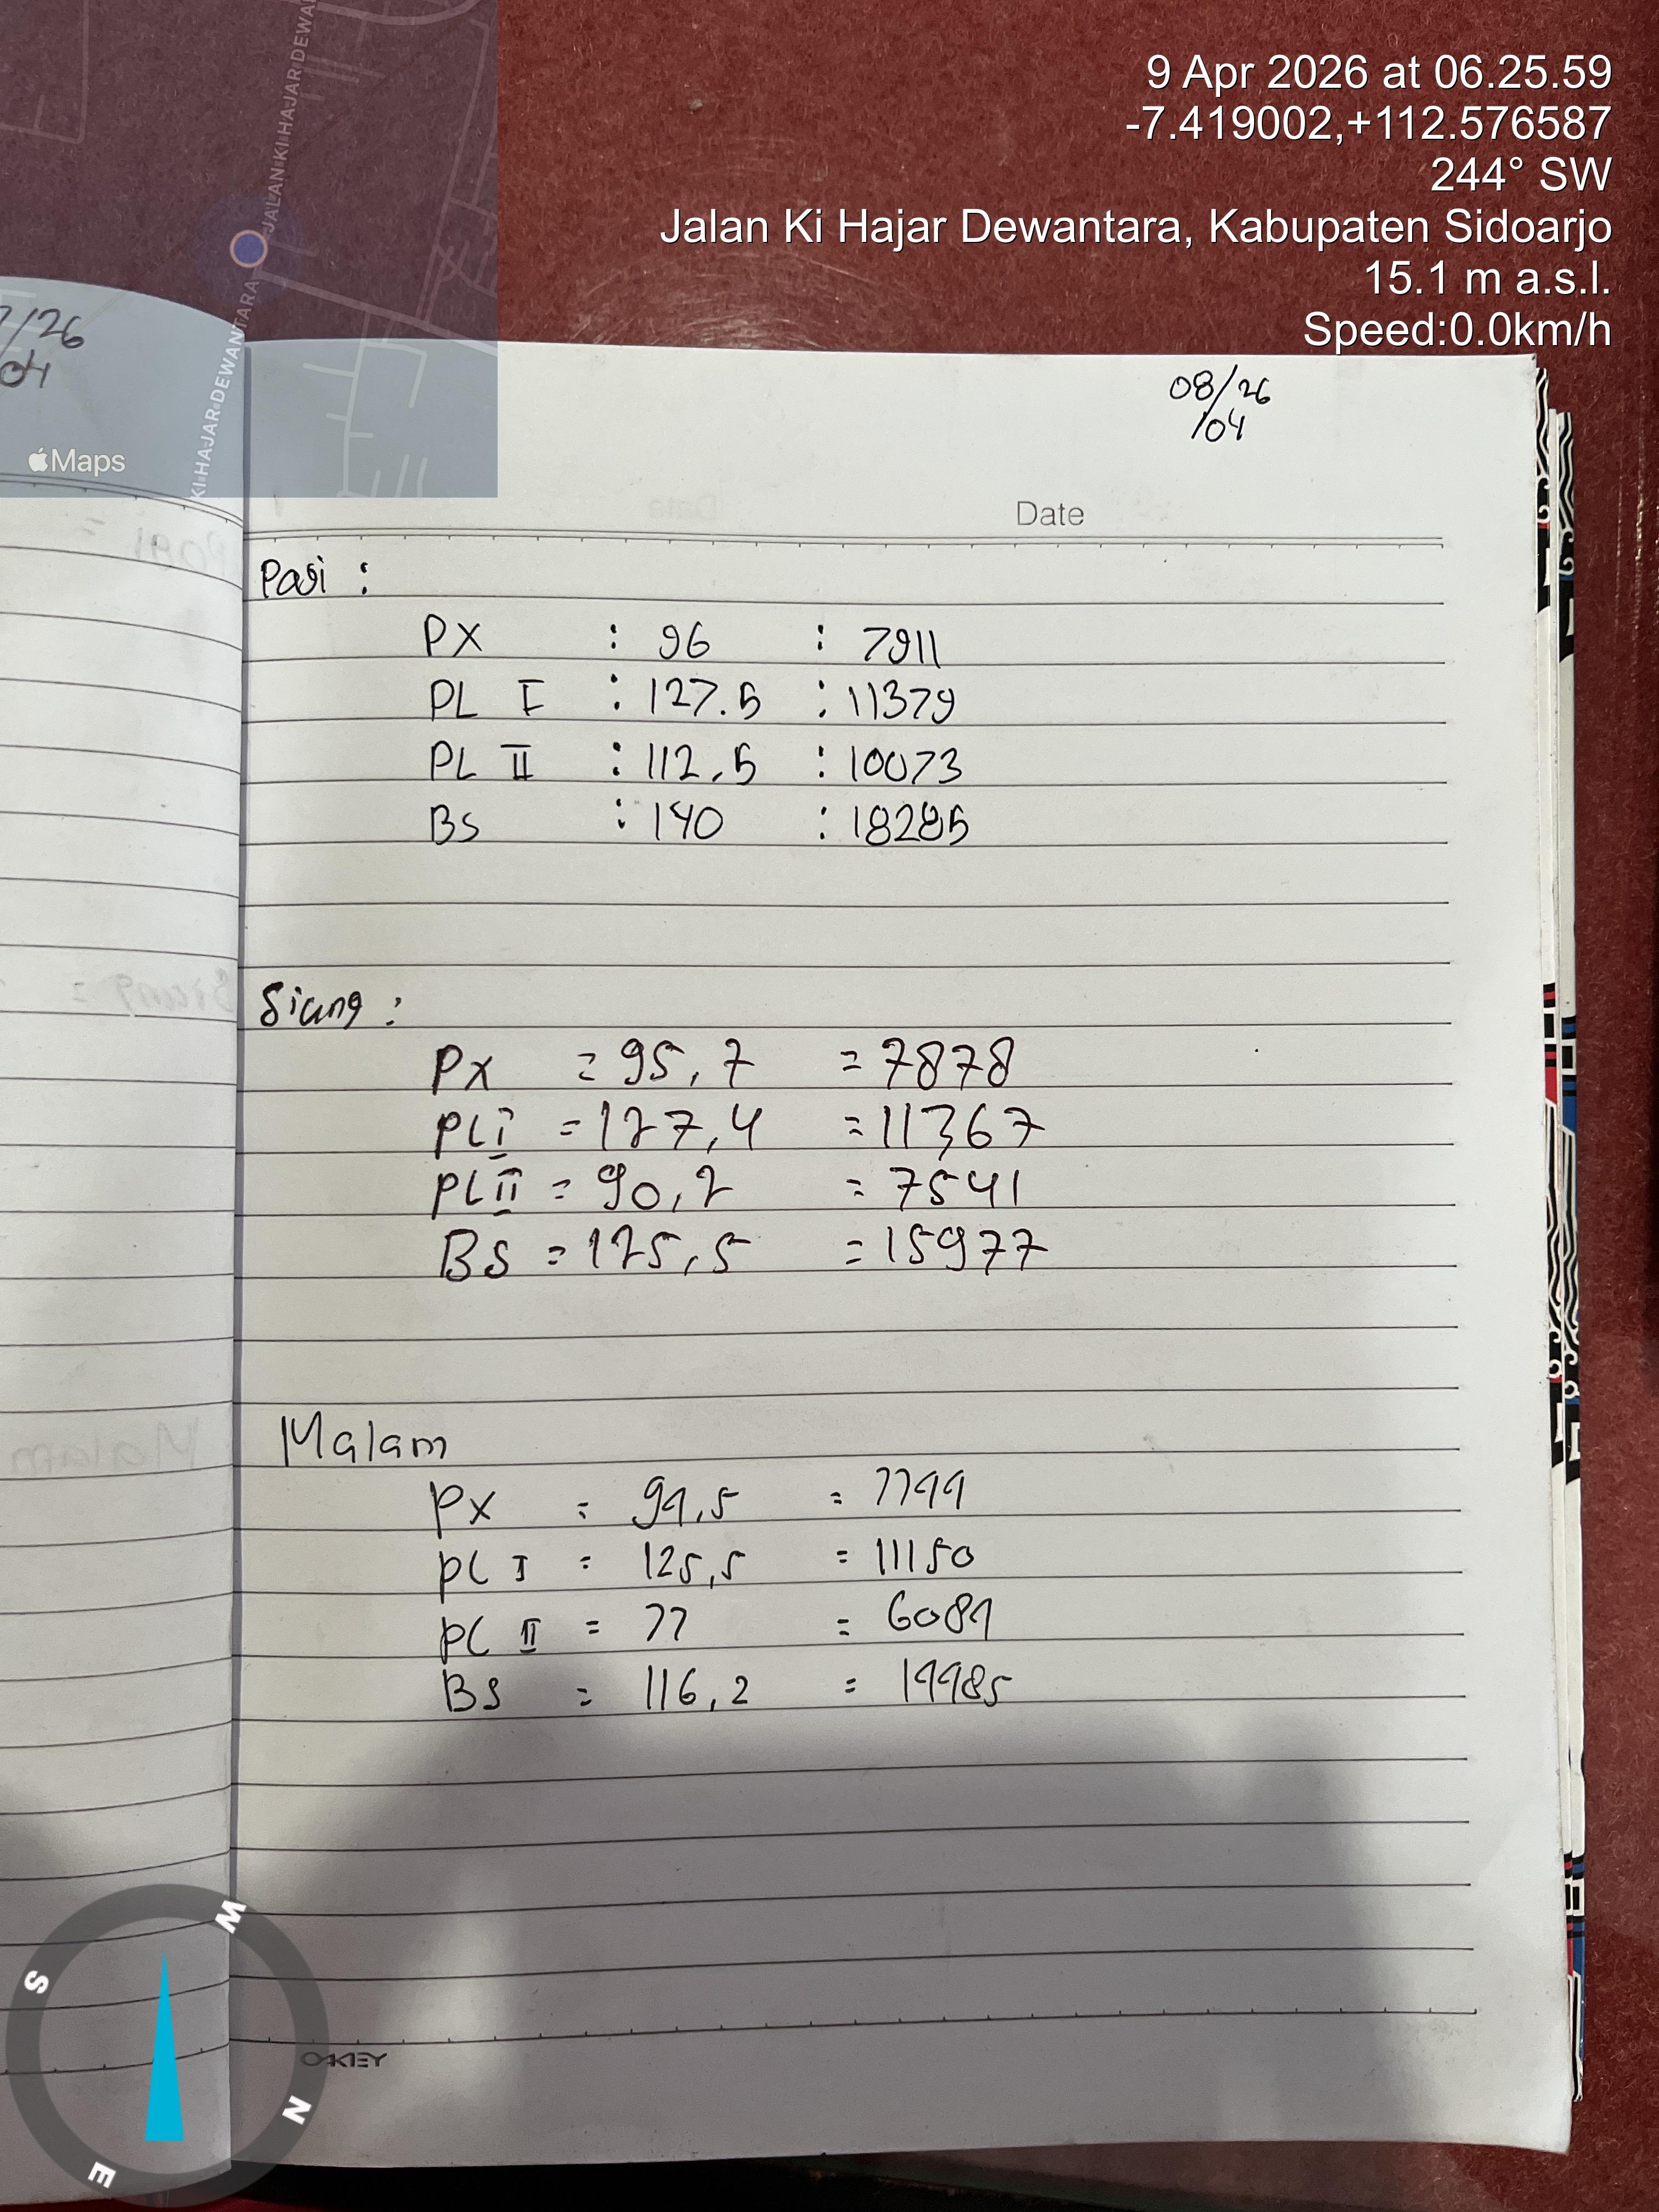 9 Apr 2026 at 06.25.59
-7.419002,+112.576587
244° SW
Jalan Ki Hajar Dewantara, Kabupaten Sidoarjo
15.1 m a.s.l.
Speed:0.0km/h
JALAN KI HAJAR DEWAN
KI HAJAR DEWANTARA
Maps
/26
04
08/26
/04
Date
Pagi :
PX : 96 : 7911
PL I : 127.5 : 11379
PL II : 112,5 : 10073
BS : 140 : 18285
Siang :
PX = 95,7 = 7878
PL I = 127,4 = 11367
PL II = 90,2 = 7541
BS = 125,5 = 15977
Malam
PX = 94,5 = 7744
PL I = 125,5 = 11150
PL II = 77 = 6084
BS = 116,2 = 14485
W
S
N
E
OAKEY